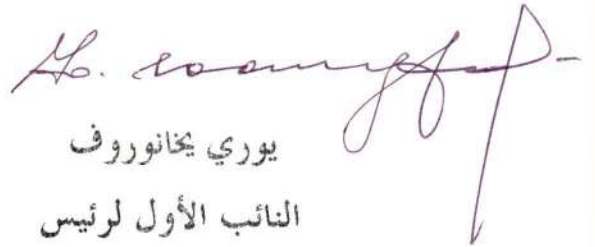 يوري يخانوروف
النائب الأول لرئيس